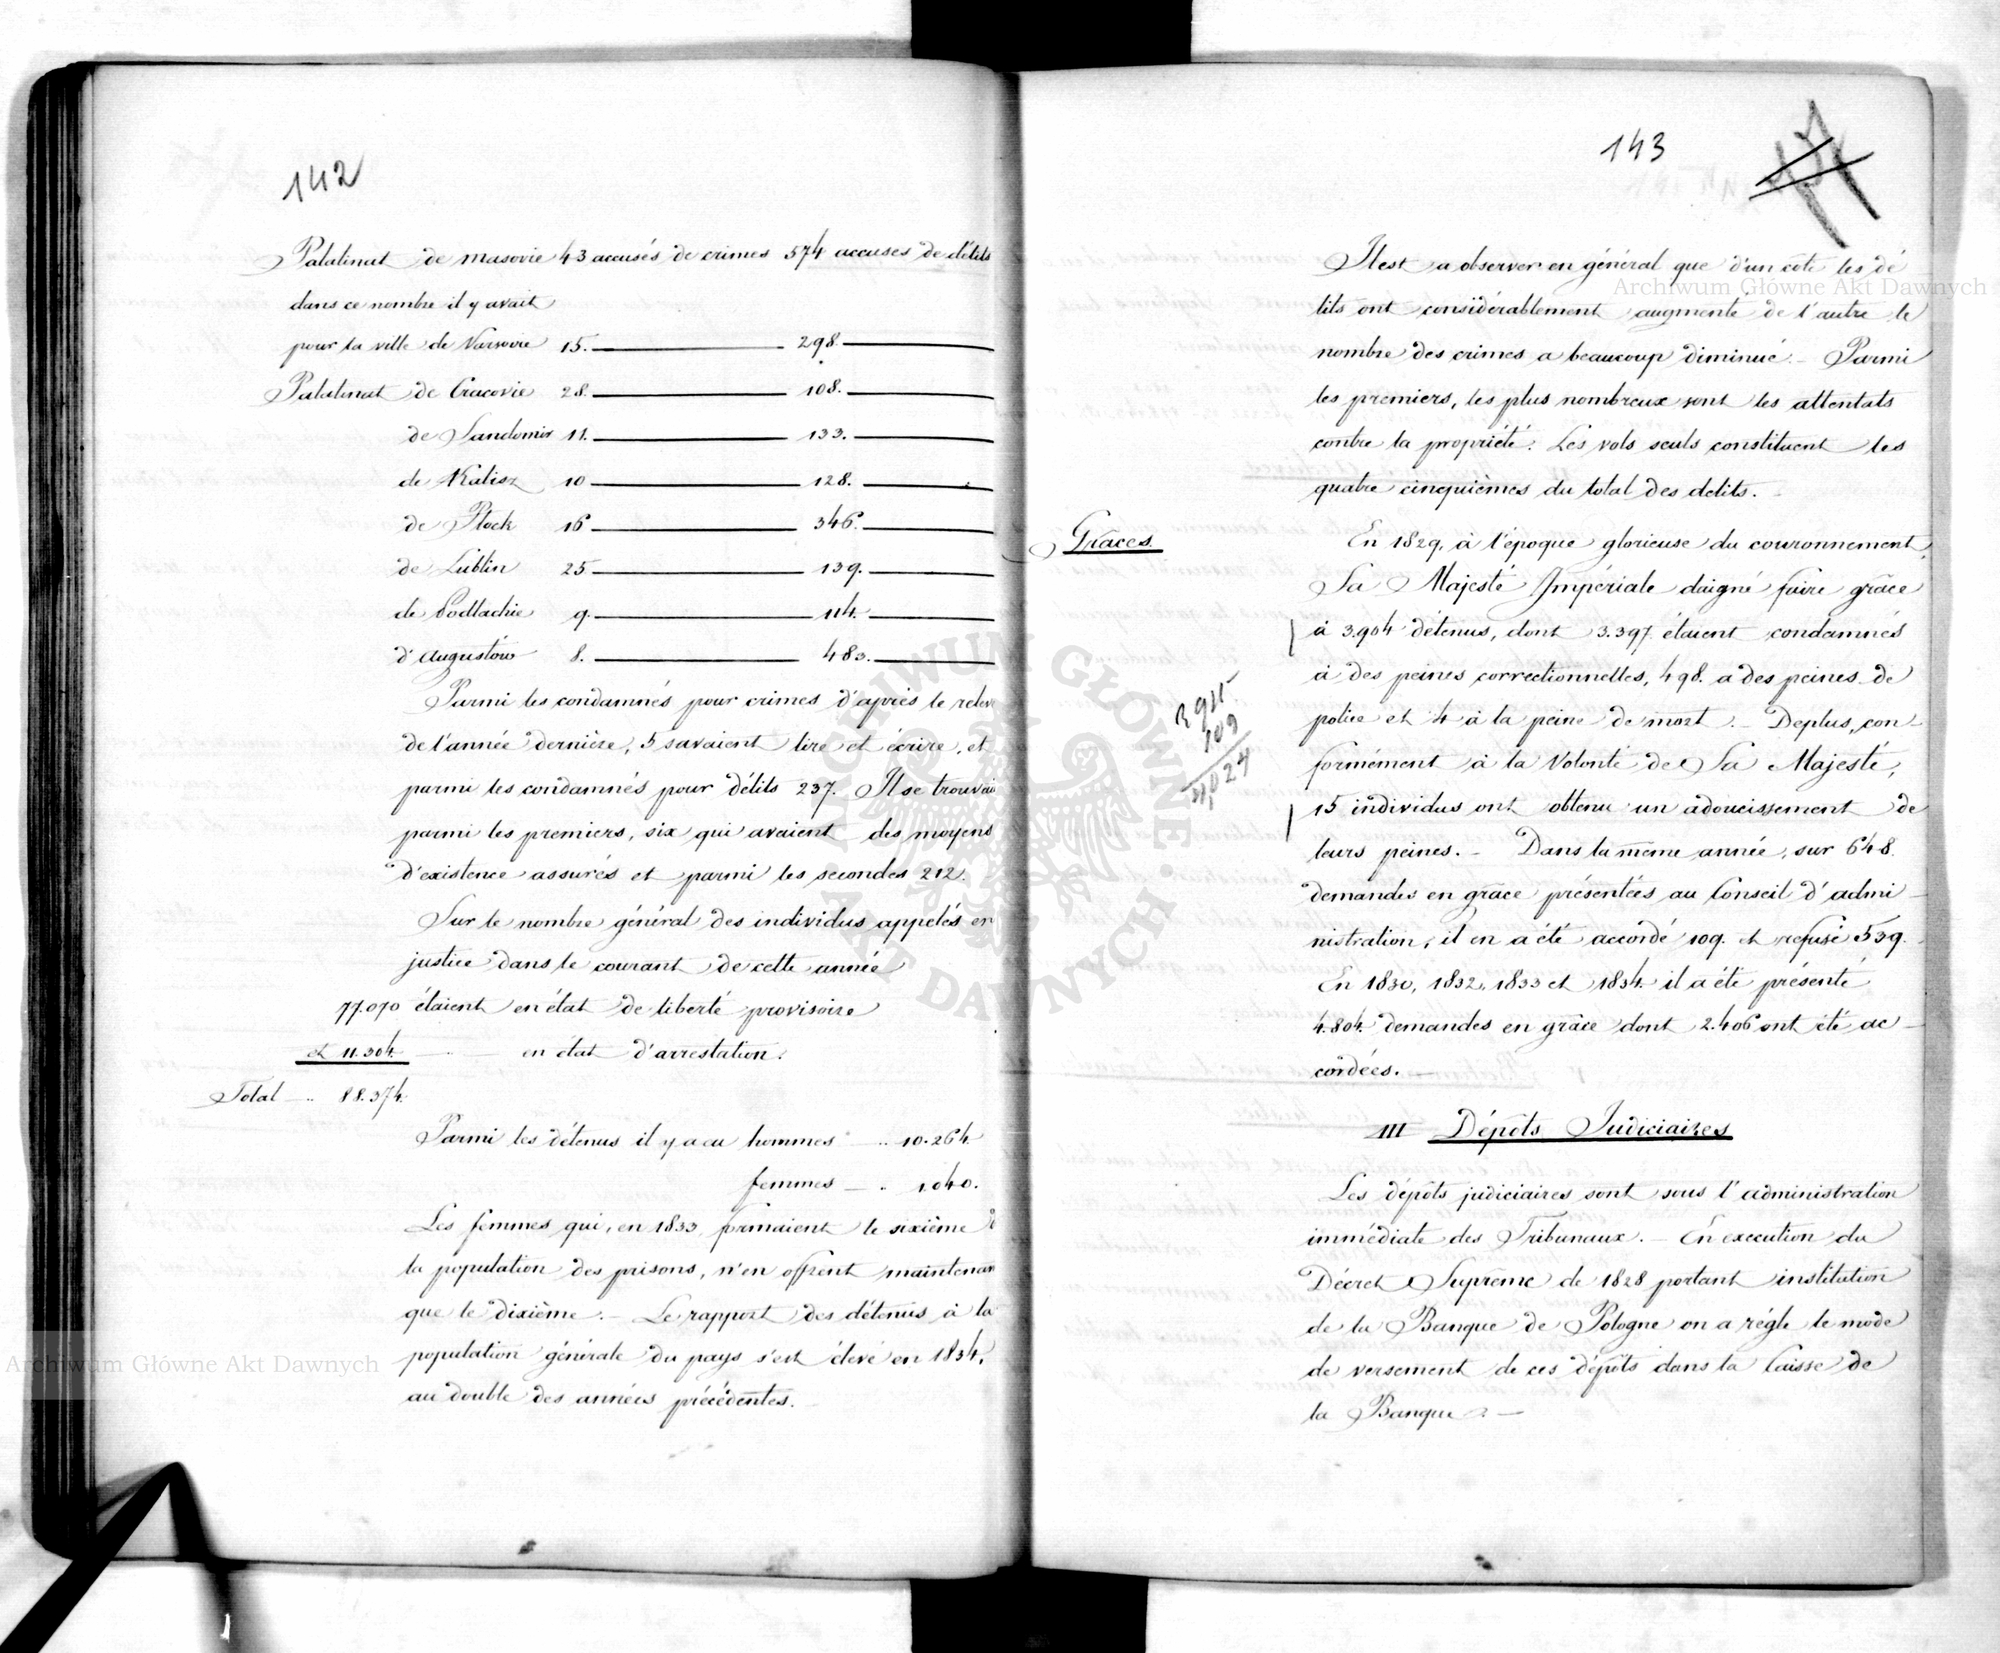 142
Palatinat de Masovie 43 accusés de crimes 574 accusés de délits
dans ce nombre il y avait
pour la ville de Varsovie 15. 298.
Palatinat de Cracovie 28. 108.
de Sandomir 11. 133.
de Kalisz 10 128.
de Plock 16 346.
de Lublin 25 139.
de Podlachie 9. 114.
d'Augustów 8. 483.
Parmi les condamnés pour crimes d'après le relevé
de l'année dernière, 5 savaient lire et écrire, et
parmi les condamnés pour délits 237. Il se trouvai
parmi les premiers, six qui avaient des moyens
d'existence assurés et parmi les secondes 212.
Sur le nombre général des individus appelés en
justice dans le courant de cette année
77.070 étaient en état de liberté provisoire
et 11.304. — en état d'arrestation.
Total — .. 88.374.
Parmi les détenus il y a eu hommes — .. 10.264
femmes — . 1.040.
Les femmes qui, en 1833, formaient le sixième d
la population des prisons, n'en offrent maintenan
que le dixième. — Le rapport des détenus à la
population générale du pays s'est élevé en 1834,
au double des années précédentes.
143
Il est a observer en général que d'un coté les dé
lits ont considérablement augmenté de l'autre le
nombre des crimes a beaucoup diminué. — Parmi
les premiers, les plus nombreux sont les attentats
contre la propriété. Les vols seuls constituent les
quatre cinquièmes du total des delits.
Grâces.
En 1829, à l'époque glorieuse du couronnement,
Sa Majesté Impériale daigné faire grâce
à 3.904 détenus, dont 3.397 étaient condamnés
à des peines correctionnelles, 498. a des peines de
police et 4 à la peine de mort. — De plus, con-
formément à la Volonté de Sa Majesté,
15 individus ont obtenu un adoucissement de
leurs peines. — Dans la même année, sur 648
demandes en grâce présentées au Conseil d'admi-
nistration, il en a été accordé 109. et refusé 539.
En 1830, 1832, 1833 et 1834 il a été présenté
4.804. demandes en grâce dont 2.406 ont été ac-
cordées. —
109
4,024
III Dépôts Judiciaires
Les dépôts judiciaires sont sous l'administration
immédiate des Tribunaux. — En execution du
Décret Suprême de 1828 portant institution
de la Banque de Pologne on a réglé le mode
de versement de ces dépôts dans la Caisse de
la Banque. —
Archiwum Główne Akt Dawnych
Archiwum Główne Akt Dawnych
ARCHIWUM GŁÓWNE AKT DAWNYCH